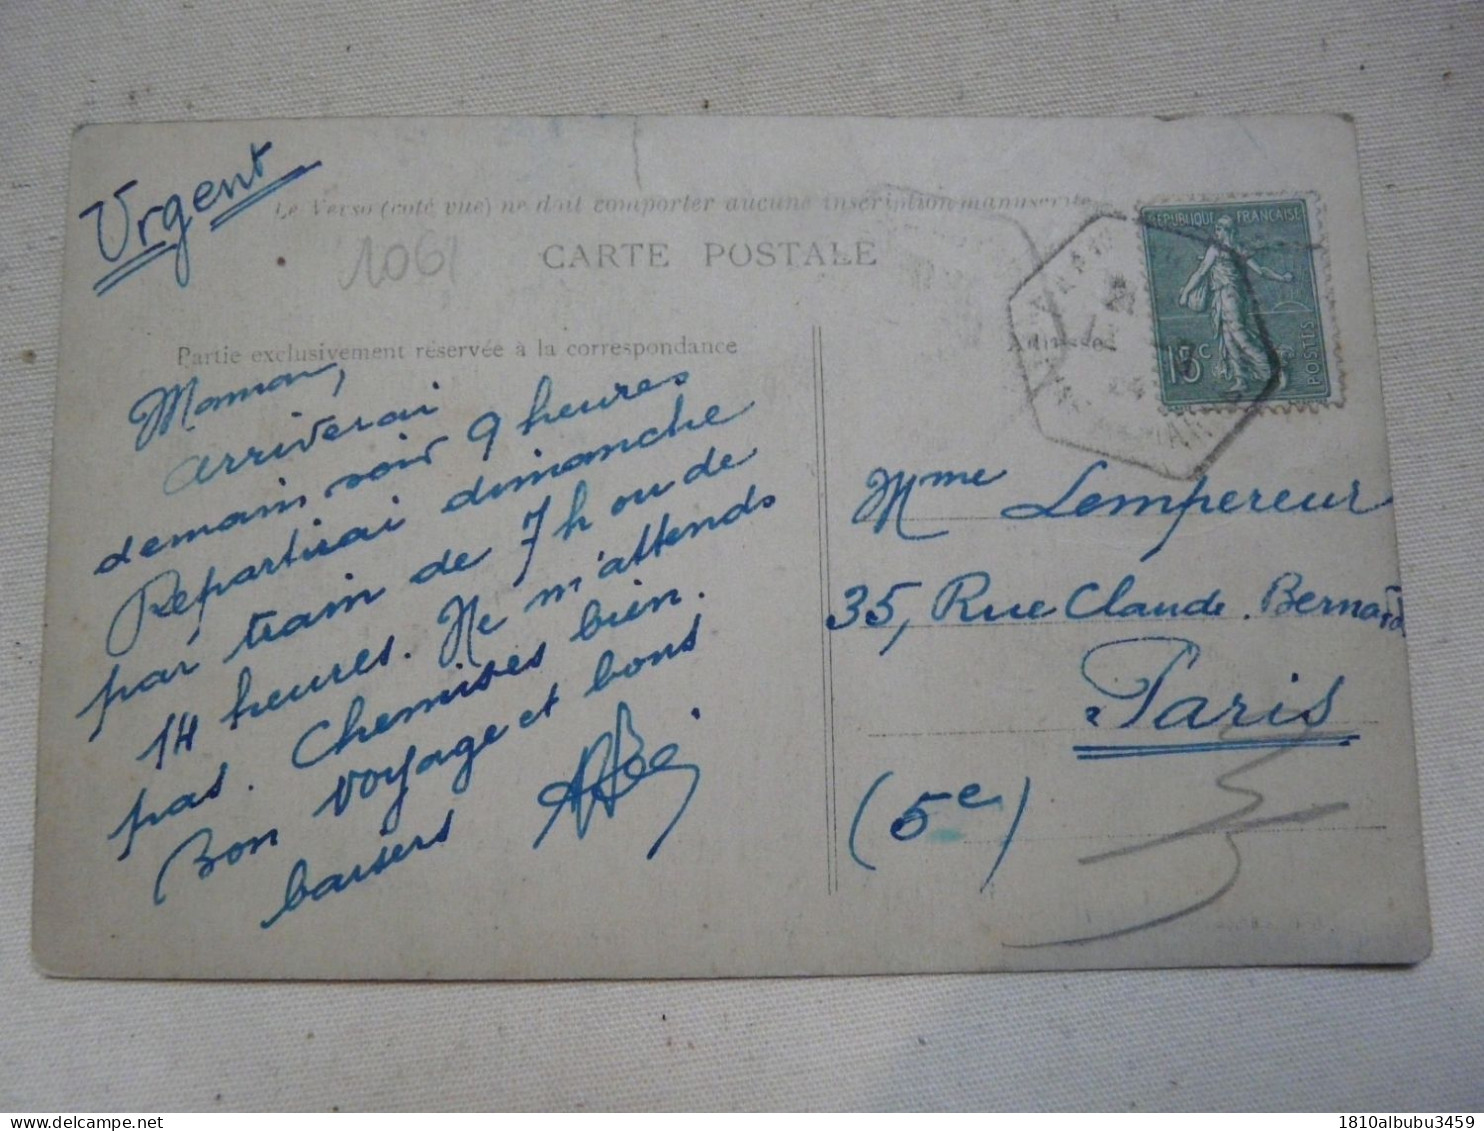 Urgent
Le Verso (côté vue) ne doit comporter aucune inscription manuscrite
1061
CARTE POSTALE
Partie exclusivement réservée à la correspondance
Maman,
arriverai
demain soir 9 heures
Repartirai dimanche
par train de 7 h ou de
14 heures. Ne m'attends
pas. Chemises bien.
Bon voyage et bons
baisers
RÉPUBLIQUE FRANÇAISE
15c
POSTES
21
24
Adresse
Mme Lempereur
35, Rue Claude Bernard
Paris
(5e)
1810albubu3459